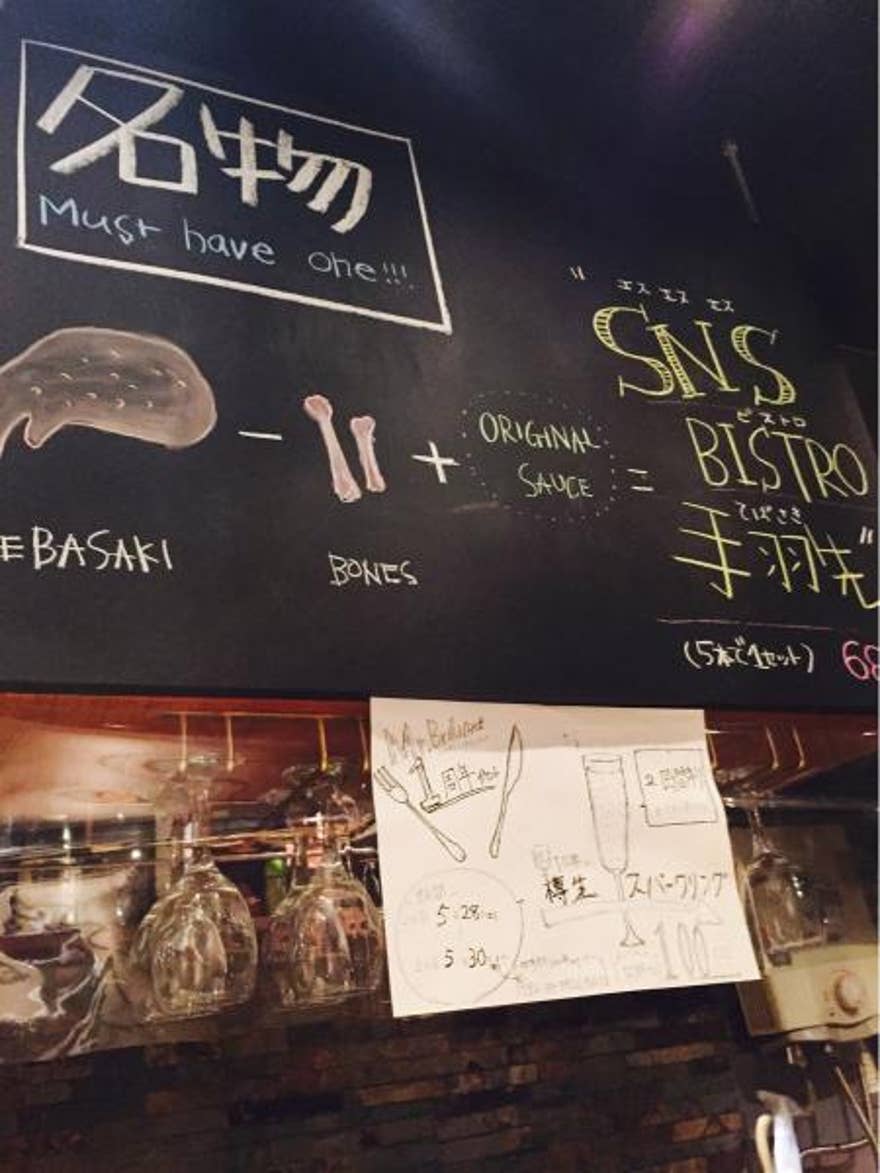 名物
Must have one!!!
エス エス エス
SNS
ビストロ
BISTRO
てばさき
手羽先
EBASAKI
-
BONES
+
ORIGINAL
SAUCE
=
(5本で1セット) 68
1周年
5.28
5.30
樽生 スパークリング
100